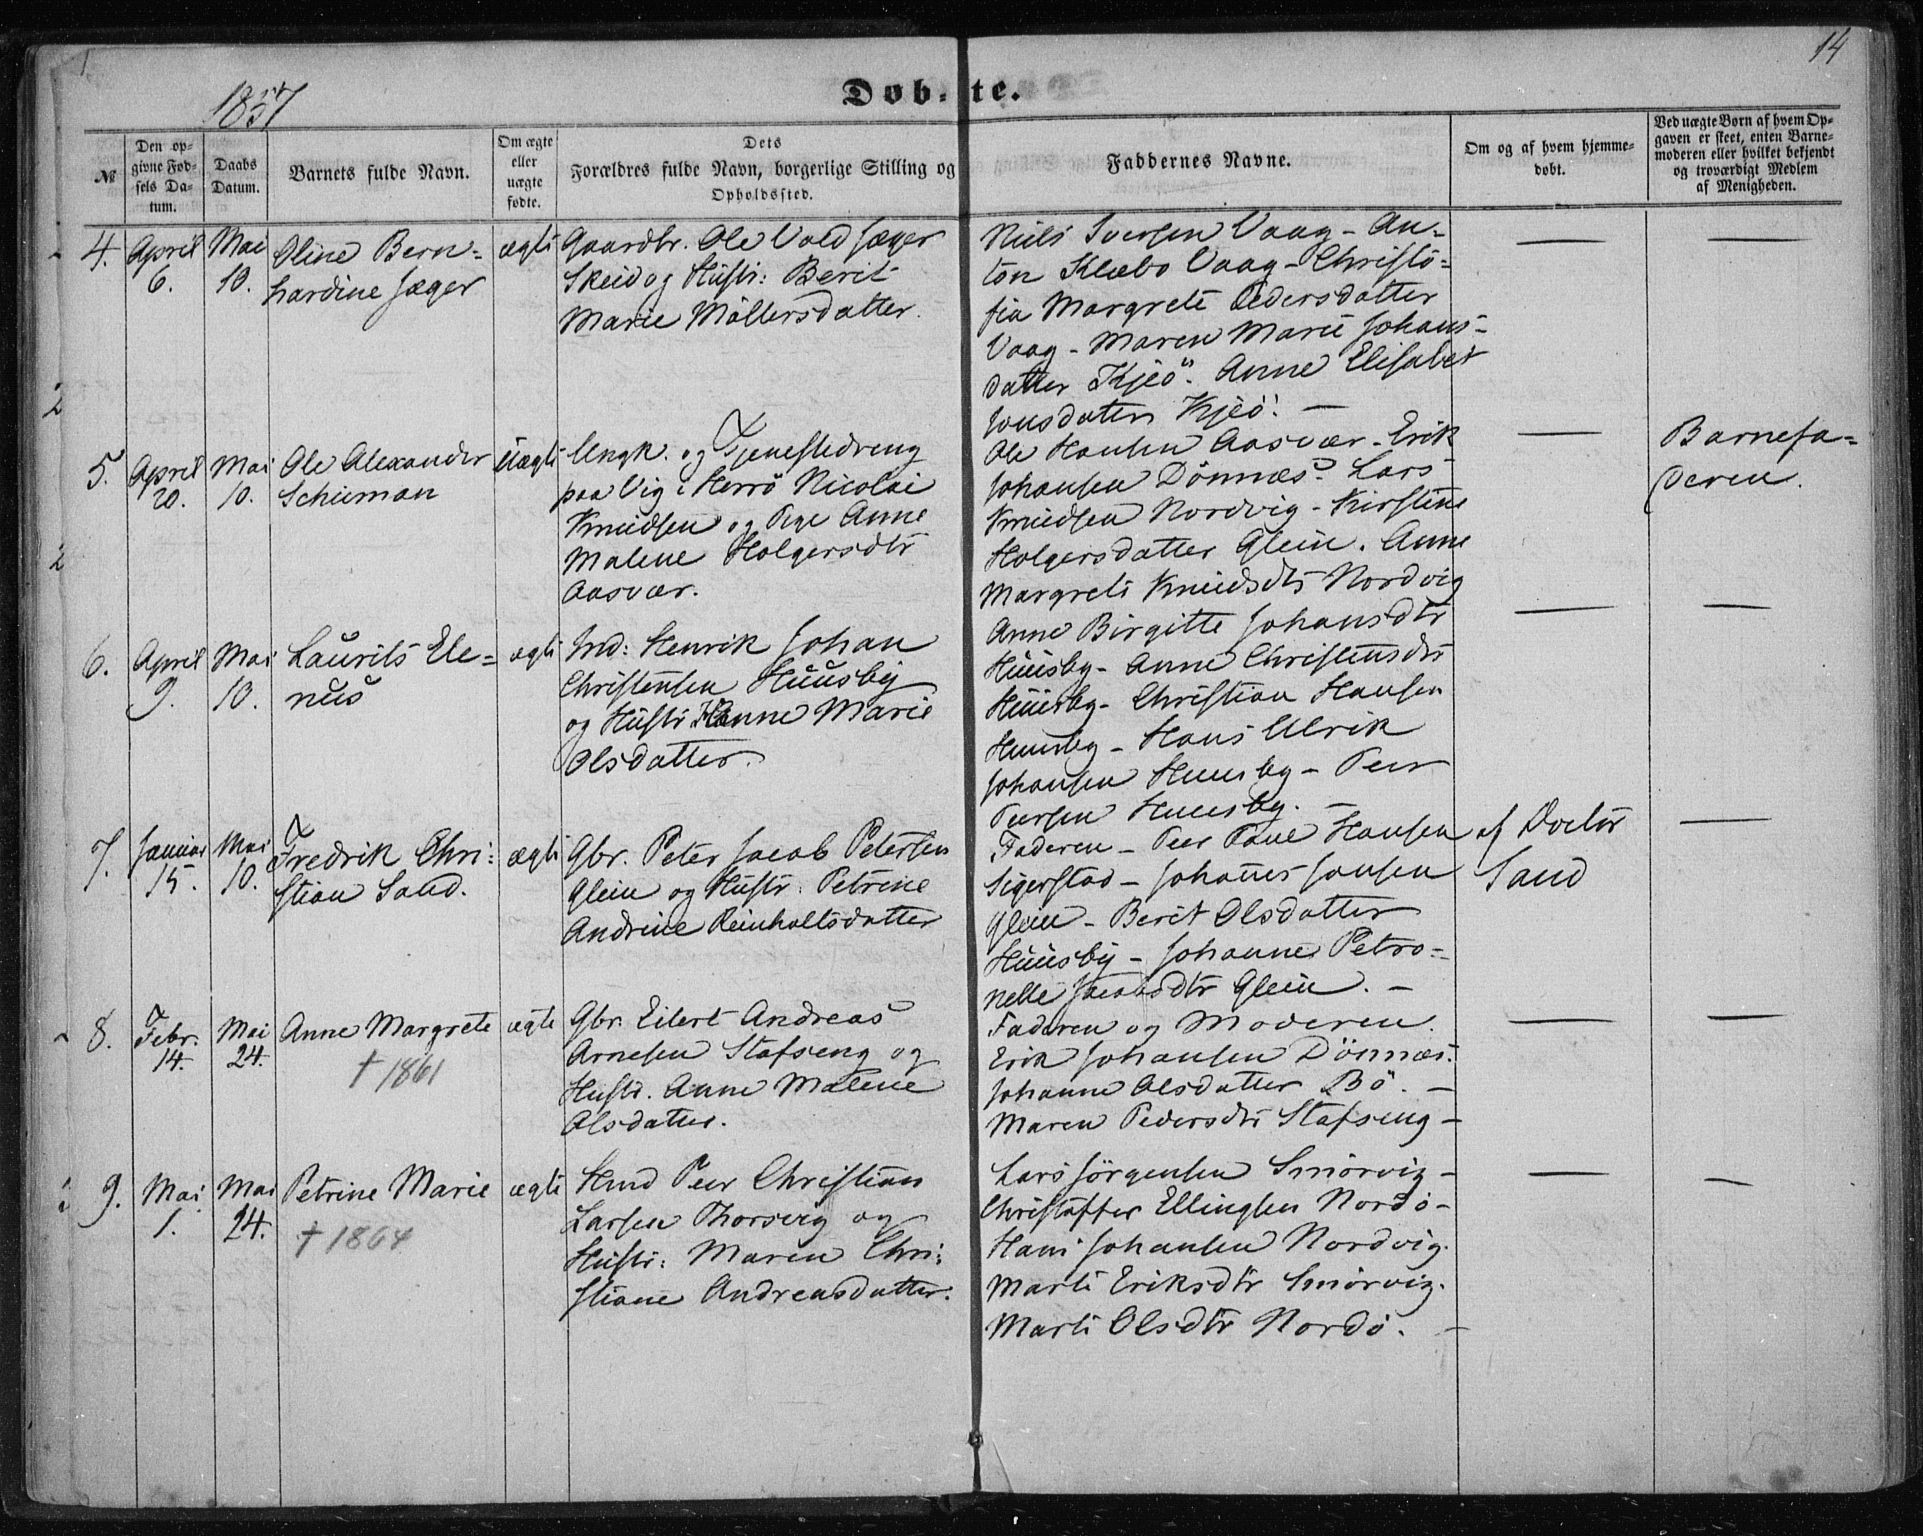 14
1857
Døb-te.
№
Den op-
givne Fød-
sels Da-
tum.
Daabs
Datum.
Barnets fulde Navn.
Om ægte
eller
uægte
fødte.
Dets
Forældres fulde Navn, borgerlige Stilling og
Opholdssted.
Faddernes Navne.
Om og af hvem hjemme-
døbt.
Ved uægte Børn af hvem Op-
gaven er skeet, enten Barne-
moderen eller hvilket bekjendt
og troværdigt Medlem
af Menigheden.
4.
April
6.
Mai
10.
Oline Bern-
hardine Jæger
ægte
Gaardbr. Ole Vold Jæger
Skeid og Hustr: Berit
Marie Möllersdatter.
Niels Iversen Vaag - An-
ton Klæbo Vaag - Christo-
fia Margrete Pedersdatter
Vaag - Maren Marie Johans-
datter Kjeö. Anne Elisabet
Jonsdatter Kjeö. —
—
—
5.
April
20.
Mai
10.
Ole Alexander
Schieman
Uægte
Ungk. og Tjenestedreng
paa Vig i Herrö Nicolai
Knudsen og Pige Anne
Malene Holgersdtr
Aasvær.
Ole Hansen Aasvær - Erik
Johansen Dönnæs. Lars
Knudsen Nordvig - Kirstine
Holgersdatter Glein. Anne
Margrete Knudsdtr Nordvig
—
Barnefa-
deren.
6.
April
9.
Mai
10.
Laurits Ele-
nus
ægte
Ind: Henrik Johan
Christensen Huusby
og Hustr Hanne Marie
Olsdatter.
Anne Birgitte Johansdtr
Huusby - Anne Christensdtr
Huusby - Christian Hansen
Huusby - Hans Ulrik
Johansen Huusby - Peer
Peersen Huusby. —
—
—
7.
Januar
15.
Mai
10.
Fredrik Chri-
stian Sand.
ægte
Gbr. Peter Jacob Petersen
Glein og Hustr: Petrine
Andrine Reinholtsdatter
Faderen - Peer Paul Hansen
Sigerstad - Johannes Jonsen
Glein - Berit Olsdatter
Huusby - Johanne Petro-
nelle Jacobsdtr Glein. —
af Doctor
Sand
—
8.
Febr.
14.
Mai
24.
Anne Margrete
† 1861
ægte
Gbr. Eilert Andreas
Arnesen Stafseng og
Hustr. Anne Malene
Olsdatter.
Faderen og Moderen.
Erik Johansen Dönnæs.
Johanne Olsdatter Bö. —
Maren Pedersdtr Stafseng —
—
—
9.
Mai
1.
Mai
24.
Petrine Marie
† 1864
ægte
Hmd Peer Christian
Larsen Thorsvig og
Hustr: Maren Chri-
stiane Andreasdatter.
Lars Jörgensen Smörvig -
Christoffer Ellingsen Nordö -
Hans Johansen Nordvig.
Marti Eriksdtr Smörvig.
Marti Olsdtr Nordö. —
—
—